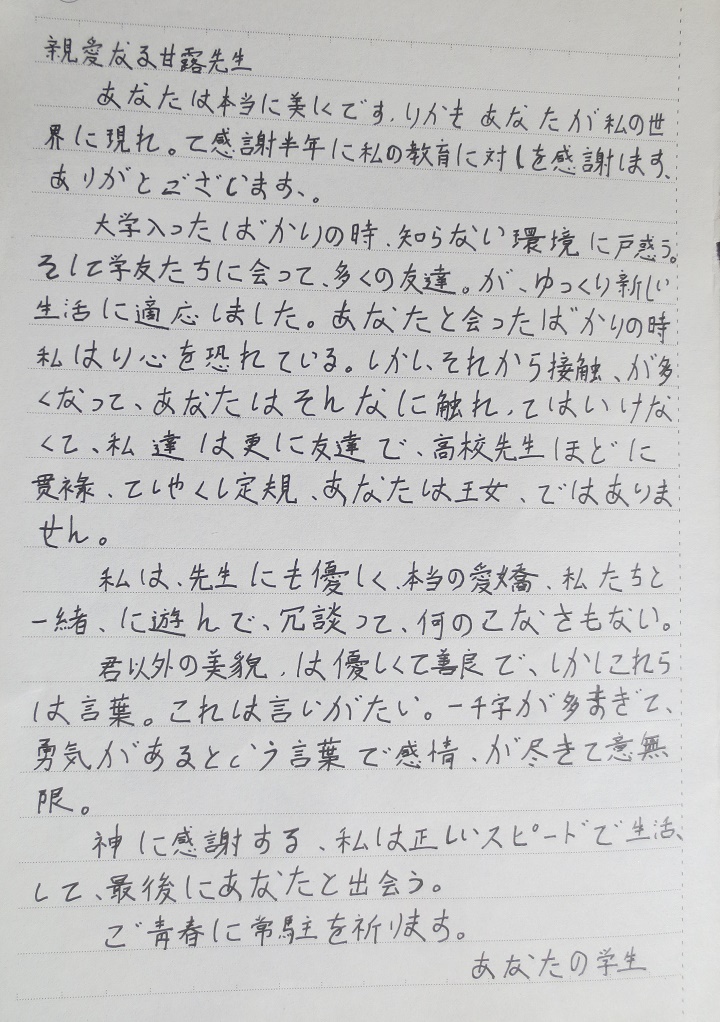 親愛なる甘露先生
あなたは本当に美しくです,りかもあなたが私の世
界に現れ。て感謝半年に私の教育に対しを感謝します、
ありがとございます、。
大学入ったばかりの時、知らない環境に戸惑う。
そして学友たちに会って、多くの友達。が、ゆっくり新しい
生活に適応しました。あなたと会ったばかりの時
私はり心を恐れている。しかし、それから接触、が多
くなって、あなたはそんなに触れ,てはいけな
くて、私達は更に友達で、高校先生ほどに
貫禄、てしやくし定規、あなたは王女、ではありま
せん。
私は、先生にも優しく、本当の愛嬌、私たちと
一緒、に遊んで、冗談って、何のこなさもない。
君以外の美貌,は優しくて善良で、しかしこれら
は言葉。これは言いがたい。一千字が多まぎて、
勇気があるという言葉で感情、が尽きて意無
限。
神に感謝する、私は正しいスピードで生活、
して、最後にあなたと出会う。
ご青春に常駐を祈ります。
あなたの学生